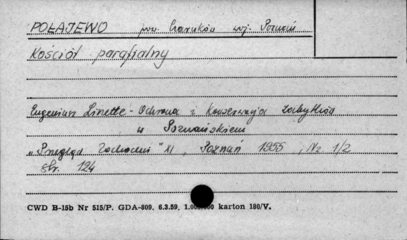 POŁAJEWO pow. Czarnków woj. Poznań
Kościół parafialny
Eugeniusz Linette - Ochrona i konserwacja zabytków
w Poznańskiem
"Przegląd Zachodni" , Poznań 1955, Nr 1/2
str. 124
CWD B-15b Nr 515/P. GDA-809. 6.3.59, karton 180/V.